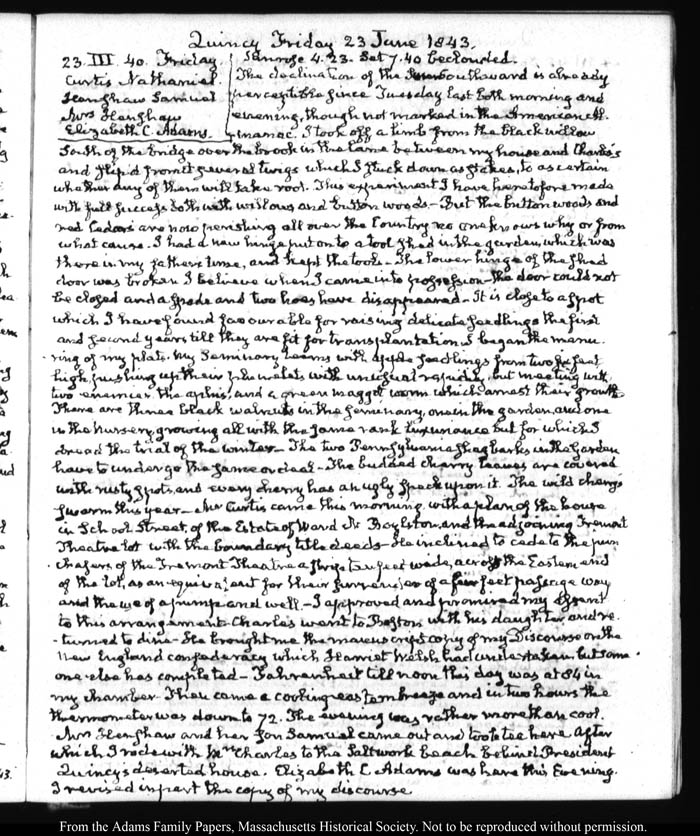 Quincy Friday 23 June 1843.
23. III. 40. Friday.
Curtis Nathaniel.
Henshaw Samuel
Mrs Henshaw
Elizabeth C. Adams.
Sunrise 4. 23. Set 7. 40 beclouded.
The declination of the Sun Southward is already
perceptible since Tuesday last both morning and
evening, though not marked in the American Al-
manac. I took off a limb from the black willow
South of the bridge over the brook in the lane between my house and Charles's
and slip'd from it several twigs which I stuck down as stakes, to ascertain
whether any of them will take root. This experiment I have heretofore made
with full success both with willows and button woods. - But the button woods and
red Cedars are now perishing all over the Country no one knows why or from
what cause. I had a new hinge put on to a tool shed in the garden, which was
there in my fathers time, and kept the tools - The lower hinge of the shed
door was broken I believe when I came into possession - the door could not
be closed and a spade and two hoes have disappeared - It is close to a spot
which I have found favourable for raising delicate seedlings the first
and second years till they are fit for transplantation. I began the manu-
ring of my plats. My Seminary teems with apple seedlings from two feet
high pushing up their plumelets with unusual rapidity, but meeting with
two enemies the aphis, and a green maggot worm which arrest their growth
There are three black walnuts in the Seminary, one in the garden, and one
in the nursery, growing all with the same rank luxuriance but for which I
dread the trial of the winter - The two Pennsylvania shagbarks in the Garden
have to undergo the same ordeal - The budded cherry leaves are covered
with rusty spots, and every cherry has an ugly speck upon it. The wild cherrys
swarm this year - Mr Curtis came this morning with a plan of the house
in School Street, of the Estate of Ward N. Boylston, and the adjoining Tremont
Theatre lot with the boundary title deeds - He inclined to cede to the pur-
chasers of the Tremont Theatre a strip ten feet wide, across the Eastern end
of the lot, as an equivalent for their surrender of a four feet passage way
and the use of a pump and well - I approved and promised my assent
to this arrangement. Charles went to Boston with his daughter, and re-
turned to dine - He brought me the manuscript copy of my Discourse on the
New England confederacy which Harriet Welsh had undertaken but some
one else has completed - Fahrenheit till noon this day was at 84 in
my chamber. Then came a cooling eastern breeze and in two hours the
thermometer was down to 72. The evening was rather more than cool.
Mrs Henshaw and her son Samuel came out and took tea here After
which I rode with Mrs Charles to the Saltwork beach behind President
Quincy's deserted house. Elizabeth C. Adams was here this Evening.
I revised in part the copy of my discourse
From the Adams Family Papers, Massachusetts Historical Society. Not to be reproduced without permission.